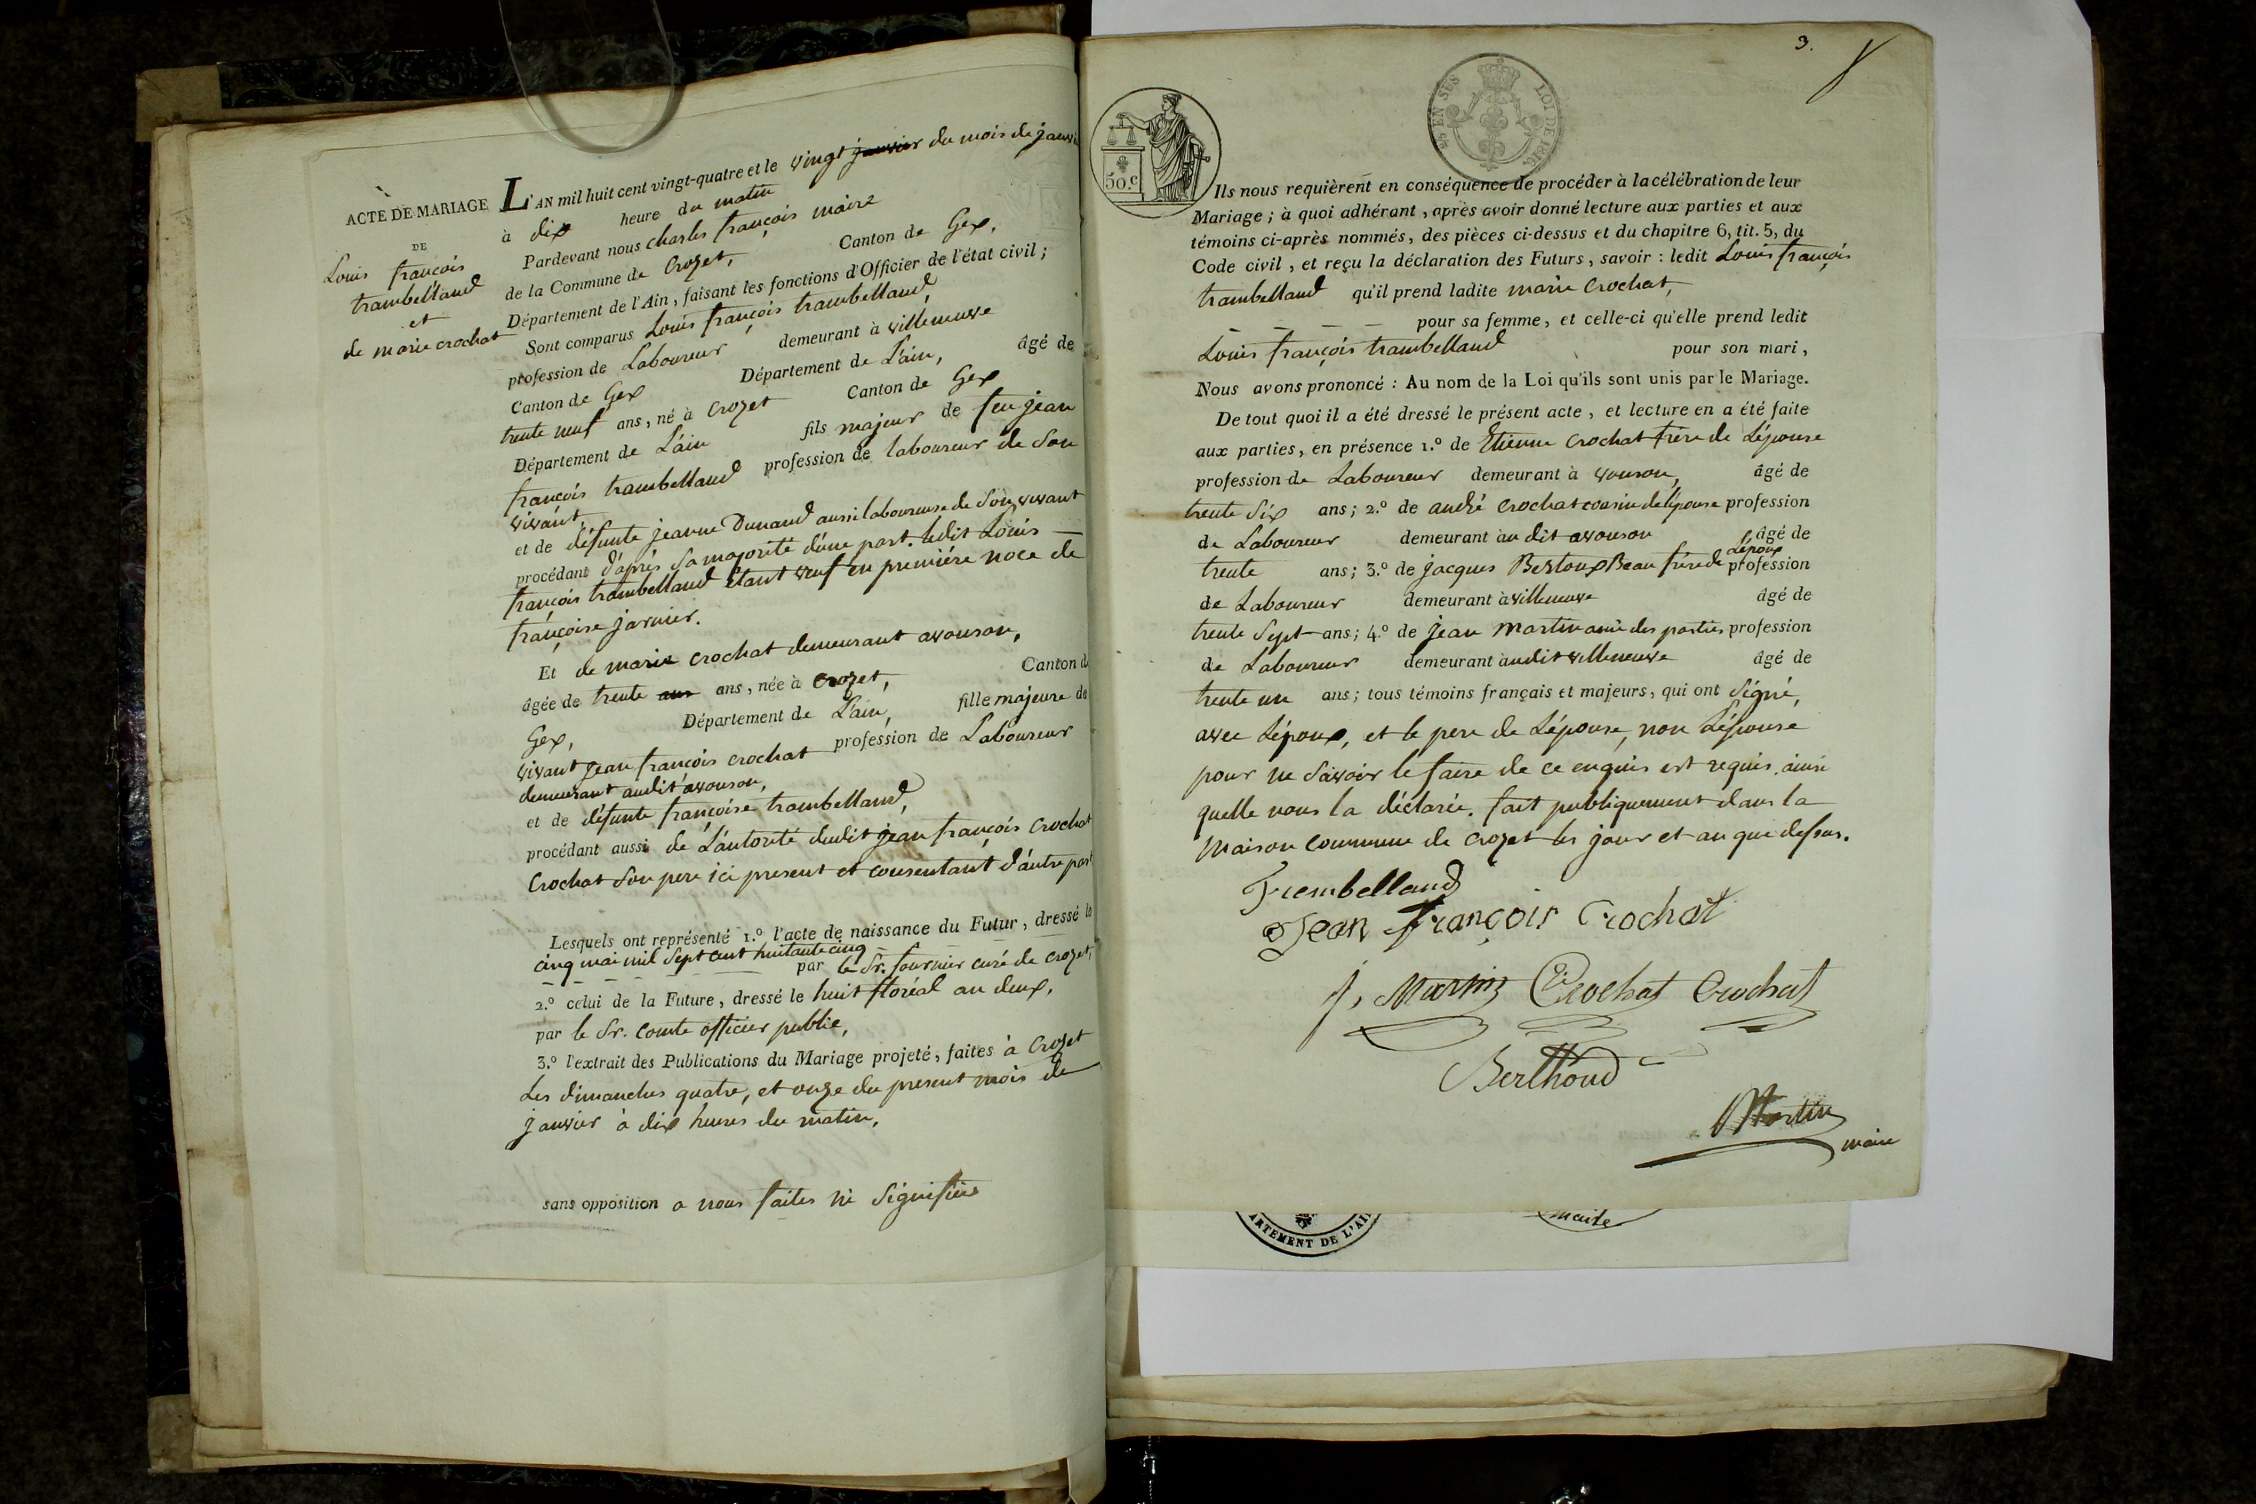 ACTE DE MARIAGE
DE
Louis françois
trambelland
et
de marie crochat
L'AN mil huit cent vingt-quatre et le vingt janvier du mois de janvi
à dix heure du matin
Pardevant nous charles françois maire
de la Commune de Crozet, Canton de Gex,
Département de l'Ain, faisant les fonctions d'Officier de l'état civil;
Sont comparus Louis françois trambelland,
profession de Laboureur demeurant à villeneuve
Canton de Gex Département de L'ain, âgé de
trente neuf ans, né à Crozet Canton de Gex
Département de L'ain fils majeur de feu jean
françois trambelland profession de laboureur de son
vivant
et de défunte jeanne Dunand aussi laboureuse de son vivant
procédant d'après sa majorité d'une part. ledit Louis
françois trambelland Etant veuf en première noce de
françoise jarnier.
Et de marie crochat demeurant avouson,
âgée de trente ans, née à Crozet, Canton d
Gex, Département de L'ain, fille majeure de
vivant jean françois crochat profession de Laboureur
demeurant audit avouson,
et de défunte françoise trambelland,
procédant aussi de L'autorité dudit jean françois Crochat
Crochat son pere ici present et consentant d'autre part
Lesquels ont représenté 1.º l'acte de naissance du Futur, dressé le
cinq mai mil sept cent huitante cinq
par le Sr. fournier curé de crozet,
2.º celui de la Future, dressé le huit floréal an deux,
par le Sr. Comte officier public,
3.º l'extrait des Publications du Mariage projeté, faites à Crozet
Les dimanches quatre, et onze du present mois de
janvier à dix heures du matin,
sans opposition a nous faites ni signifiées
3.
50.c
EN SUS
LOI DE 1816.
Ils nous requièrent en conséquence de procéder à la célébration de leur
Mariage; à quoi adhérant, après avoir donné lecture aux parties et aux
témoins ci-après nommés, des pièces ci-dessus et du chapitre 6, tit. 5, du
Code civil, et reçu la déclaration des Futurs, savoir: ledit Louis françois
trambelland qu'il prend ladite marie Crochat,
pour sa femme, et celle-ci qu'elle prend ledit
Louis françois trambelland pour son mari,
Nous avons prononcé: Au nom de la Loi qu'ils sont unis par le Mariage.
De tout quoi il a été dressé le présent acte, et lecture en a été faite
aux parties, en présence 1.º de Etienne Crochat frère de Lépouse
profession de Laboureur demeurant à vouson, âgé de
trente six ans; 2.º de andré Crochat cousin de lépouse profession
de Laboureur demeurant au dit avouson âgé de
trente ans; 3.º de jacques Bertoux Beau frère de Lépoux profession
de Laboureur demeurant à villeneuve âgé de
trente sept ans; 4.º de jean martin ami des parties profession
de Laboureur demeurant audit villeneuve âgé de
trente un ans; tous témoins français et majeurs, qui ont signé,
avec Lépoux, et le pere de Lépouse, non Lépouse
pour ne savoir le faire de ce enquis est requis, ainsi
quelle nous la déclarée. fait publiquement dans la
maison commune de Crozet les jour et an que dessus.
Trembelland
Jean François Crochat
j. Martin Crochat Crochat
Berthoud
Martin
maire
ARTEMENT DE L'AI
maire